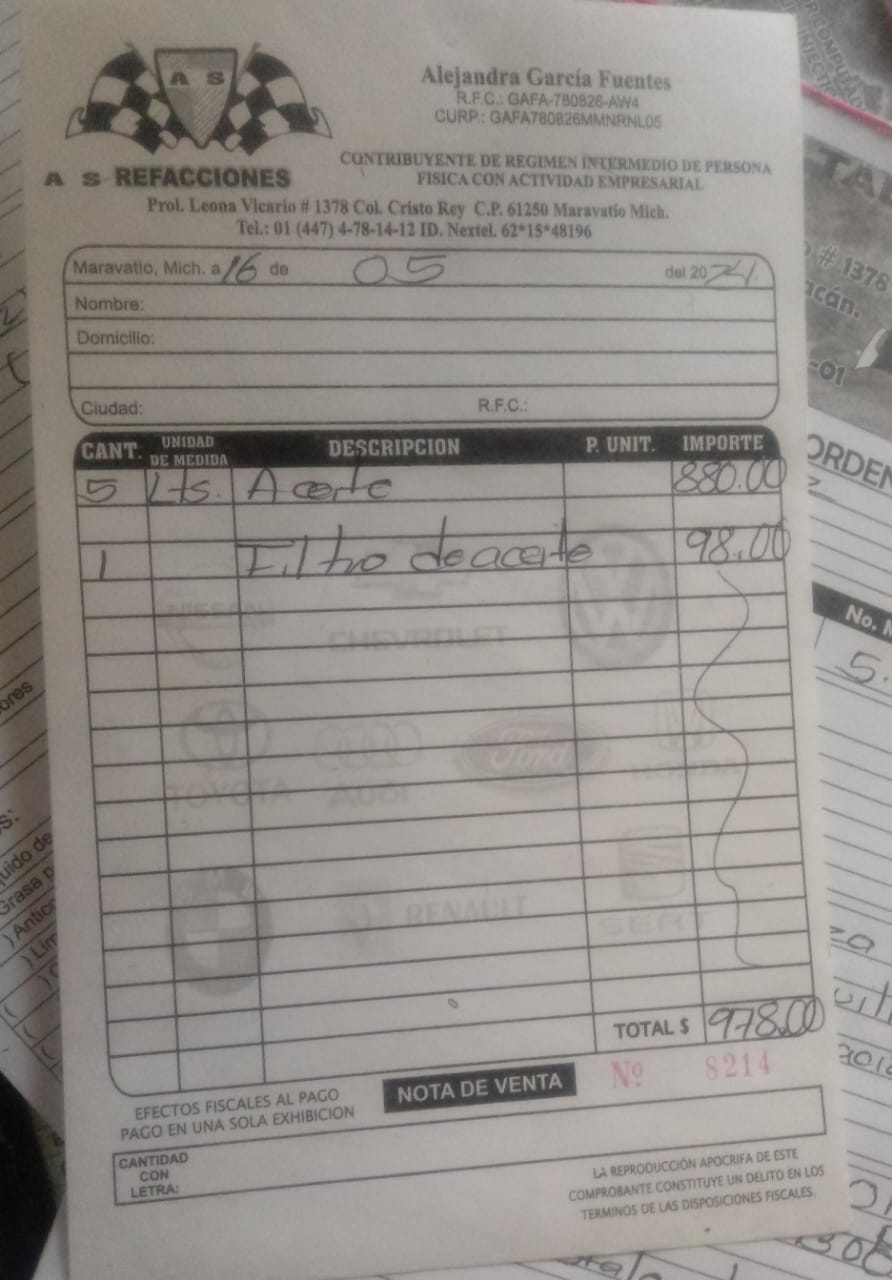 A S
A S REFACCIONES
Alejandra García Fuentes
R.F.C.: GAFA-780826-AW4
CURP.: GAFA780826MMNRNL05
CONTRIBUYENTE DE REGIMEN INTERMEDIO DE PERSONA
FISICA CON ACTIVIDAD EMPRESARIAL
Prol. Leona Vicario # 1378 Col. Cristo Rey C.P. 61250 Maravatío Mich.
Tel.: 01 (447) 4-78-14-12 ID. Nextel. 62*15*48196
Maravatio, Mich. a 16 de 05 del 2021.
Nombre:
Domicilio:
Ciudad: R.F.C.:
CANT. UNIDAD DE MEDIDA DESCRIPCION P. UNIT. IMPORTE
5 Lts. Aceite 880.00
1 Filtro de aceite 98.00
NISSAN CHEVROLET
TOYOTA AUDI Ford HONDA
BMW RENAULT SEAT
TOTAL $ 978.00
EFECTOS FISCALES AL PAGO
PAGO EN UNA SOLA EXHIBICION
NOTA DE VENTA
Nº 8214
CANTIDAD
CON
LETRA:
LA REPRODUCCIÓN APOCRIFA DE ESTE
COMPROBANTE CONSTITUYE UN DELITO EN LOS
TERMINOS DE LAS DISPOSICIONES FISCALES.
# 1378
-01
ORDEN
No.
5.